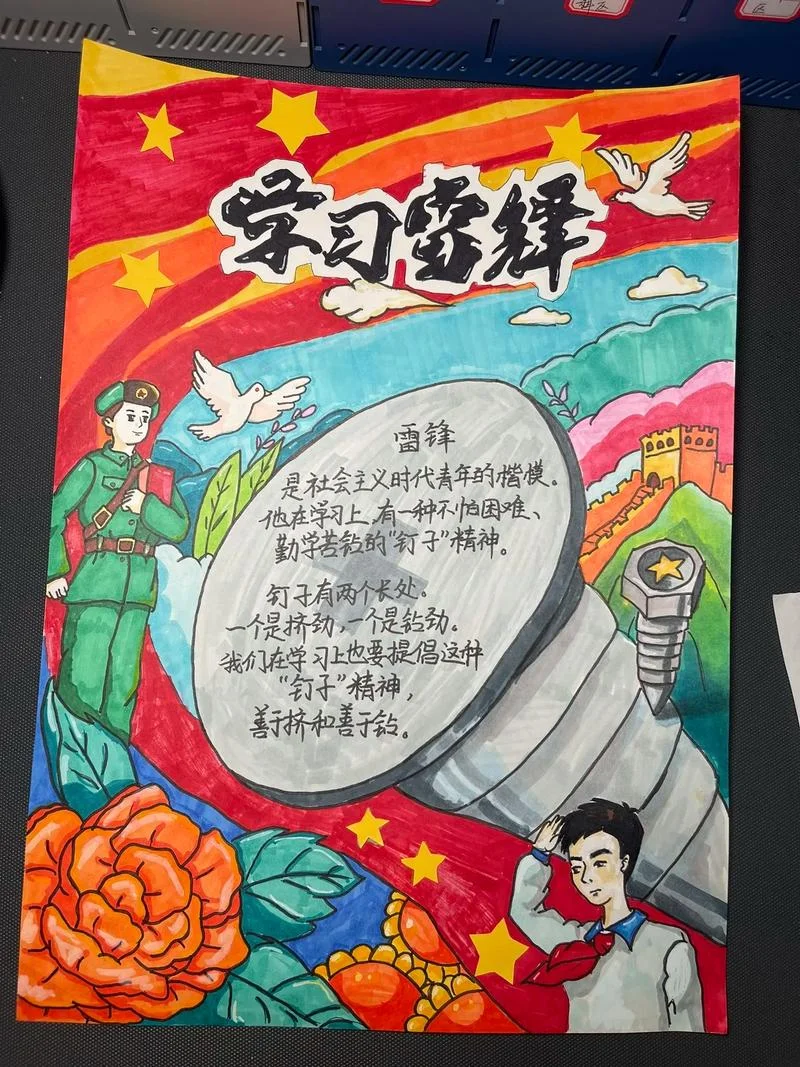 学习雷锋
雷锋
是社会主义时代青年的楷模。
他在学习上,有一种不怕困难、
勤学苦钻的“钉子”精神。
钉子有两个长处。
一个是挤劲,一个是钻劲。
我们在学习上也要提倡这种
“钉子”精神,
善于挤和善于钻。